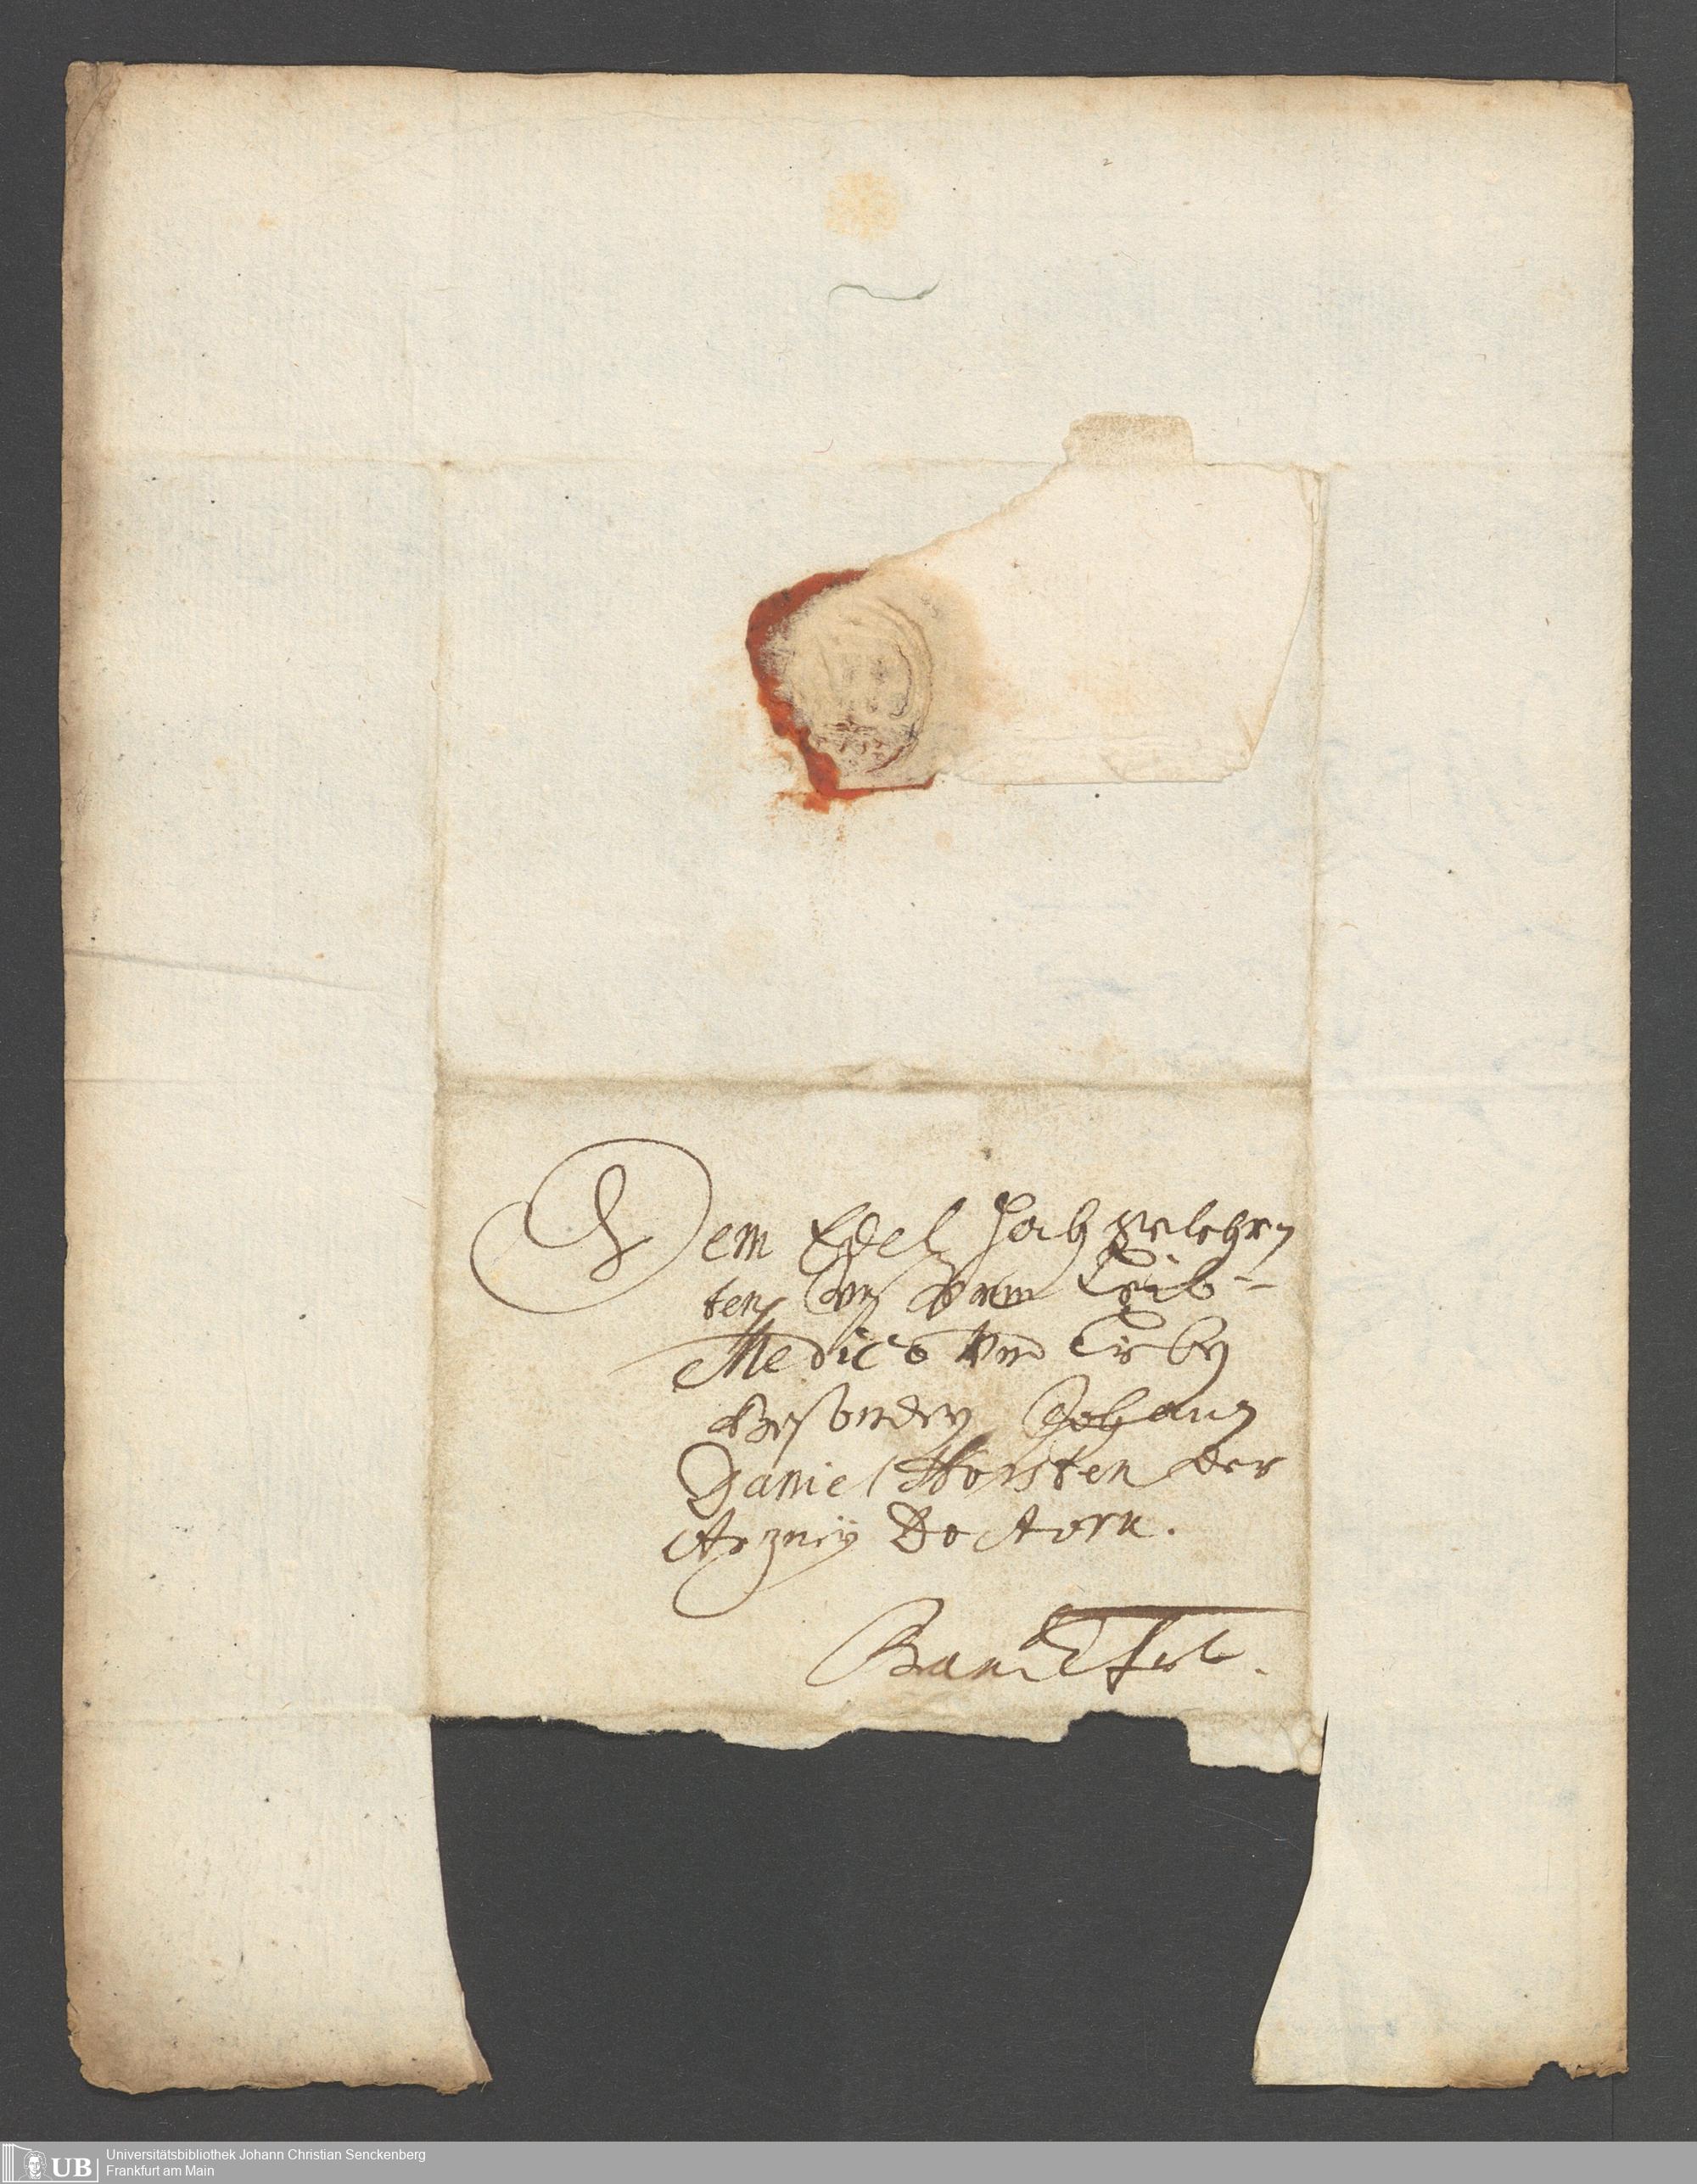 Dem Edel Hochgelehr
ten Unserm Leib-
Medico Und Lieben
Besondern Johann
Daniel Horsten der
Artzney Doctorn.
Franckfurt.
UB Universitätsbibliothek Johann Christian Senckenberg
Frankfurt am Main